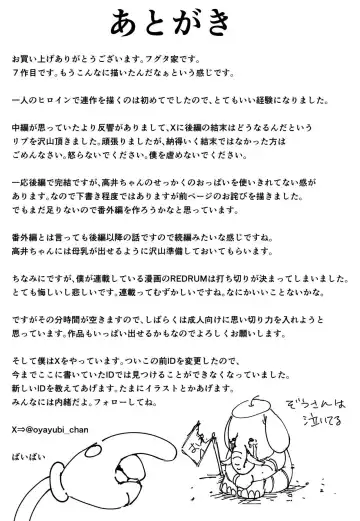 あとがき
お買い上げありがとうございます。フグタ家です。
7作目です。もうこんなに描いたんだなぁという感じです。
一人のヒロインで連作を描くのは初めてでしたので、とてもいい経験になりました。
中編が思っていたより反響がありまして、Xに後編の結末はどうなるんだという
リプを沢山頂きました。頑張りましたが、納得いく結末ではなかった方は
ごめんなさい。怒らないでください。僕を虐めないでください。
一応後編で完結ですが、高井ちゃんのせっかくのおっぱいを使いきれてない感が
あります。なので下書き程度ではありますが前ページのお詫びを描きました。
でもまだ足りないので番外編を作ろうかなと思っています。
番外編とは言っても後編以降の話ですので続編みたいな感じですね。
高井ちゃんには母乳が出せるように沢山準備しておいてもらいます。
ちなみにですが、僕が連載している漫画のREDRUMは打ち切りが決まってしまいました。
とても悔しいし悲しいです。連載ってむずかしいですね。なにかいいことないかな。
ですがその分時間が空きますので、しばらくは成人向けに思い切り力を入れようと
思っています。作品もいっぱい出せるかもなのでよろしくお願いします。
そして僕はXをやっています。ついこの前IDを変更したので、
今までここに書いていたIDでは見つけることができなくなっていました。
新しいIDを教えてあげます。たまにイラストとかあげます。
みんなには内緒だよ。フォローしてね。
X⇒@oyayubi_chan
ばいばい
ぞうさんは
泣いてる